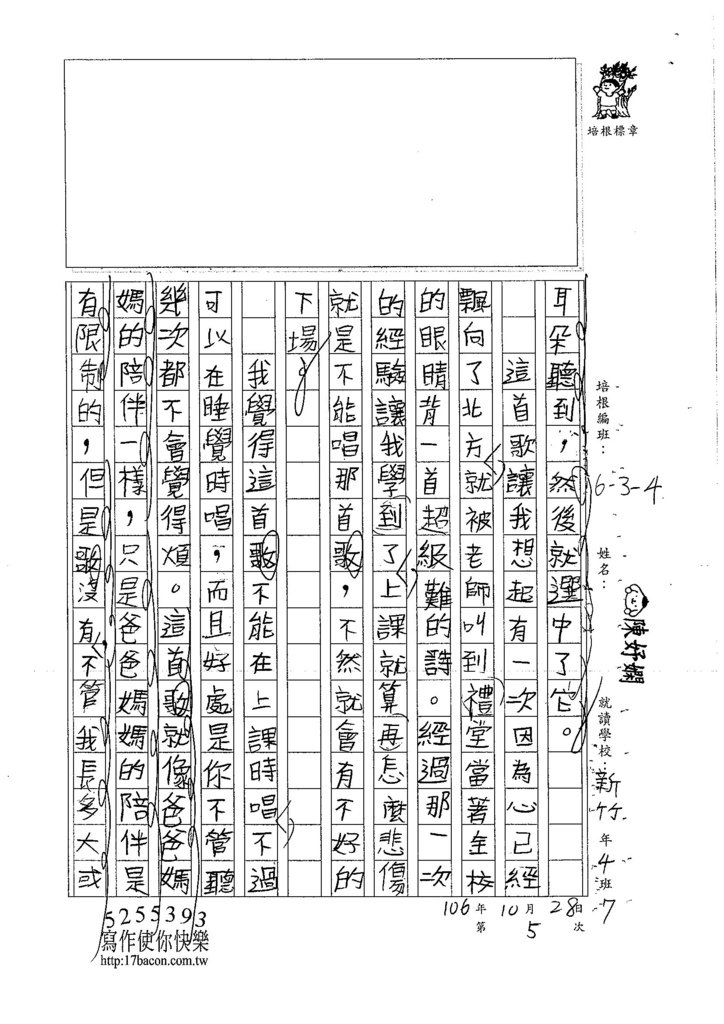 培根標章
培根編班：6-3-4
姓名：陳妤嫻
就讀學校：新竹
年4班7
耳朵聽到，然後就選中了它。
這首歌讓我想起有一次因為心已經
飄向了北方就被老師叫到禮堂當著全校
的眼睛背一首超級難的詩。經過那一次
的經驗讓我學到了上課就算再怎麼悲傷
就是不能唱那首歌，不然就會有不好的
下場。
我覺得這首歌不能在上課時唱不過
可以在睡覺時唱，而且好處是你不管聽
幾次都不會覺得煩。這首歌就像爸爸媽
媽的陪伴一樣，只是爸爸媽媽的陪伴是
有限制的，但是歌沒有，不管我長多大或
106年10月28日
第5次
5255393
寫作使你快樂
http:17bacon.com.tw